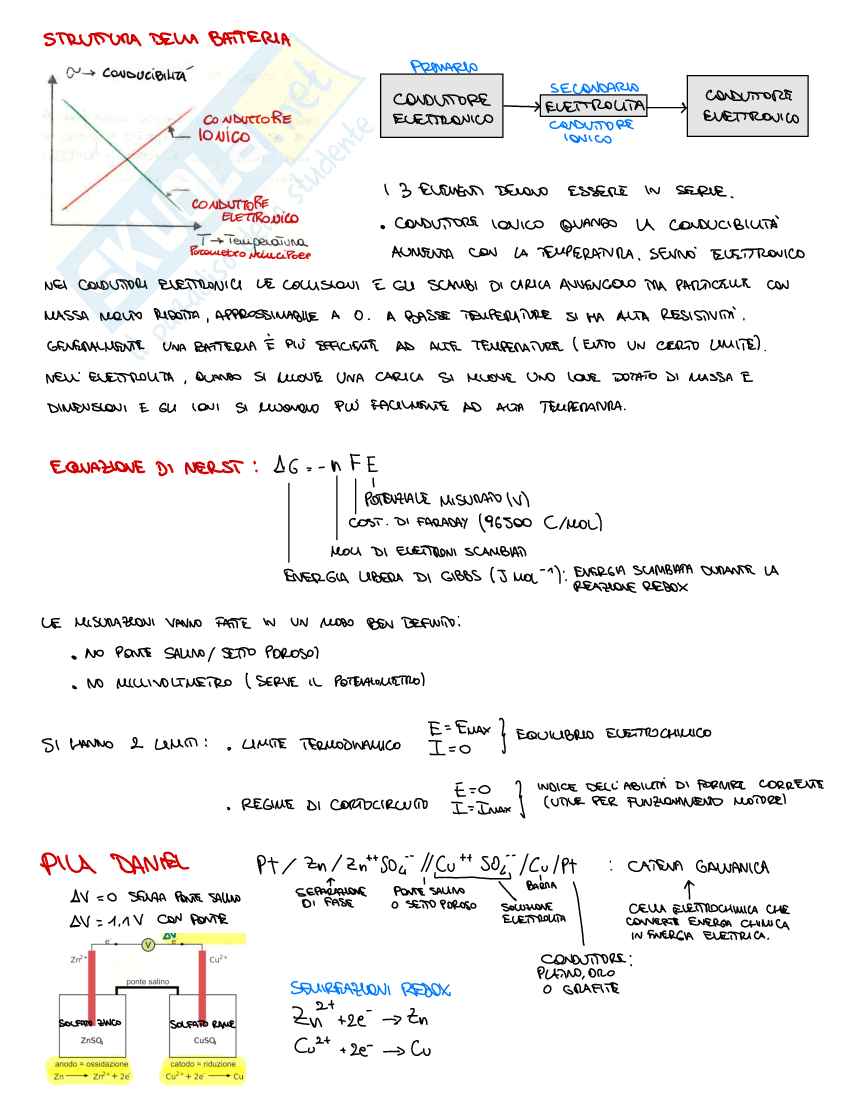 STRUTTURA DELLA BATTERIA
σ → CONDUCIBILITÁ
CONDUTTORE
IONICO
CONDUTTORE
ELETTRONICO
T → Temperatura
Parametro principale
PRIMARIO
CONDUTTORE
ELETTRONICO
SECONDARIO
ELETTROLITA
CONDUTTORE
IONICO
CONDUTTORE
ELETTRONICO
I 3 ELEMENTI DEVONO ESSERE IN SERIE.
• CONDUTTORE IONICO QUANDO LA CONDUCIBILITÁ
AUMENTA CON LA TEMPERATURA, SENNÓ ELETTRONICO
NEI CONDUTTORI ELETTRONICI LE COLLISIONI E GLI SCAMBI DI CARICA AVVENGONO TRA PARTICELLE CON
MASSA MOLTO RIDOTTA, APPROSSIMABILE A 0. A BASSE TEMPERATURE SI HA ALTA RESISTIVITÁ.
GENERALMENTE UNA BATTERIA È PIÚ EFFICIENTE AD ALTE TEMPERATURE (ENTRO UN CERTO LIMITE).
NELL' ELETTROLITA, QUANDO SI MUOVE UNA CARICA SI MUOVE UNO IONE DOTATO DI MASSA E
DIMENSIONI E GLI IONI SI MUOVONO PIÚ FACILMENTE AD ALTA TEMPERATURA.
EQUAZIONE DI NERST: ΔG = -n F E
POTENZIALE MISURATO (V)
COST. DI FARADAY (96500 C/MOL)
MOLI DI ELETTRONI SCAMBIATI
ENERGIA LIBERA DI GIBBS (J MOL⁻¹): ENERGIA SCAMBIATA DURANTE LA
REAZIONE REDOX
LE MISURAZIONI VANNO FATTE IN UN MODO BEN DEFINITO:
• NO PONTE SALINO/ SETTO POROSO)
• NO MILLIVOLTMETRO (SERVE IL POTENZIOMETRO)
SI HANNO 2 LIMITI: • LIMITE TERMODINAMICO E = EMAX I = 0 } EQUILIBRIO ELETTROCHIMICO
• REGIME DI CORTOCIRCUITO E = 0 I = IMAX } INDICE DELL'ABILITÁ DI FORNIRE CORRENTE
(UTILE PER FUNZIONAMENTO MOTORE)
PILA DANIEL
Pt / Zn / Zn⁺⁺ SO₄⁻⁻ // Cu⁺⁺ SO₄⁻⁻ / Cu / Pt : CATENA GALVANICA
SEPARAZIONE
DI FASE
PONTE SALINO
O SETTO POROSO
SOLUZIONE
ELETTROLITA
BARRA
CONDUTTORE:
PLATINO, ORO
O GRAFITE
CELLA ELETTROCHIMICA CHE
CONVERTE ENERGIA CHIMICA
IN ENERGIA ELETTRICA.
ΔV = 0 SENZA PONTE SALINO
ΔV = 1,1 V CON PONTE
ΔV
e⁻ V e⁻
Zn²⁺ Cu²⁺
ponte salino
SOLFATO ZINCO SOLFATO RAME
ZnSO₄ CuSO₄
anodo = ossidazione catodo = riduzione
Zn → Zn²⁺ + 2e⁻ Cu²⁺ + 2e⁻ → Cu
SEMIREAZIONI REDOX
Zn²⁺ + 2e⁻ → Zn
Cu²⁺ + 2e⁻ → Cu
SKUOLA.net
il paradiso dello studente